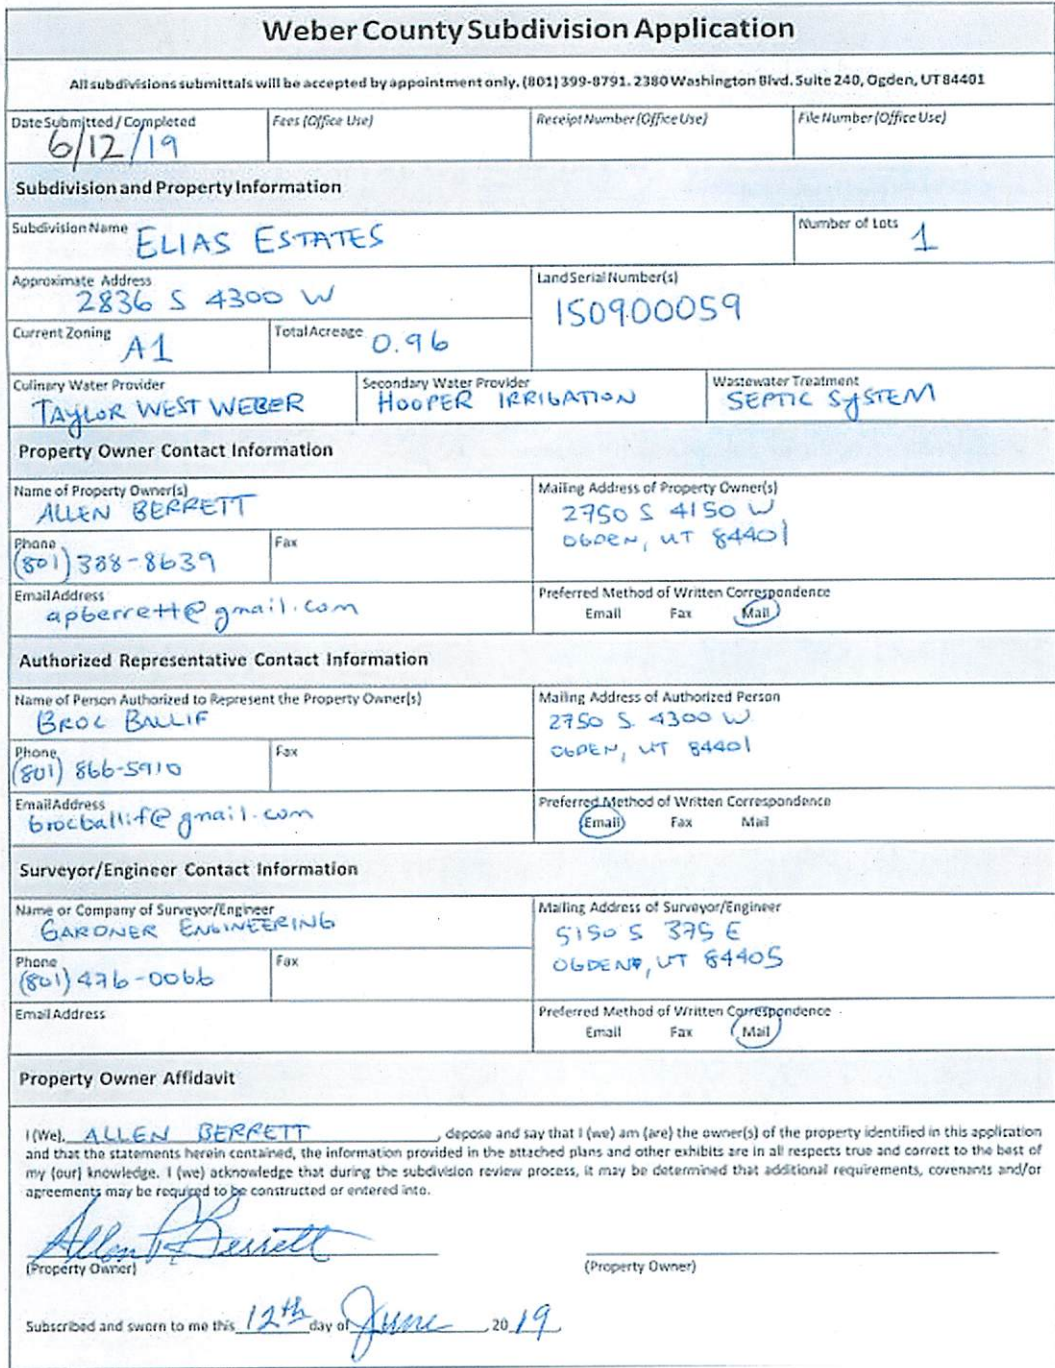 Weber County Subdivision Application
All subdivisions submittals will be accepted by appointment only. (801) 399-8791. 2380 Washington Blvd. Suite 240, Ogden, UT 84401
Date Submitted / Completed
6/12/19
Fees (Office Use)
Receipt Number (Office Use)
File Number (Office Use)
Subdivision and Property Information
Subdivision Name
ELIAS ESTATES
Number of Lots
1
Approximate Address
2836 S 4300 W
Land Serial Number(s)
150900059
Current Zoning
A1
Total Acreage
0.96
Culinary Water Provider
TAYLOR WEST WEBER
Secondary Water Provider
HOOPER IRRIGATION
Wastewater Treatment
SEPTIC SYSTEM
Property Owner Contact Information
Name of Property Owner(s)
ALLEN BERRETT
Mailing Address of Property Owner(s)
2750 S 4150 W
OGDEN, UT 84401
Phone
(801) 388-8639
Fax
Email Address
apberrett@gmail.com
Preferred Method of Written Correspondence
Email Fax Mail
Authorized Representative Contact Information
Name of Person Authorized to Represent the Property Owner(s)
BROC BALLIF
Mailing Address of Authorized Person
2750 S 4300 W
OGDEN, UT 84401
Phone
(801) 866-5910
Fax
Email Address
brocballif@gmail.com
Preferred Method of Written Correspondence
Email Fax Mail
Surveyor/Engineer Contact Information
Name or Company of Surveyor/Engineer
GARDNER ENGINEERING
Mailing Address of Surveyor/Engineer
5150 S 375 E
OGDEN, UT 84405
Phone
(801) 476-0066
Fax
Email Address
Preferred Method of Written Correspondence
Email Fax Mail
Property Owner Affidavit
I (We), ALLEN BERRETT, depose and say that I (we) am (are) the owner(s) of the property identified in this application
and that the statements herein contained, the information provided in the attached plans and other exhibits are in all respects true and correct to the best of
my (our) knowledge. I (we) acknowledge that during the subdivision review process, it may be determined that additional requirements, covenants and/or
agreements may be required to be constructed or entered into.
Allen P Berrett
(Property Owner)
(Property Owner)
Subscribed and sworn to me this 12th day of June, 20 19,